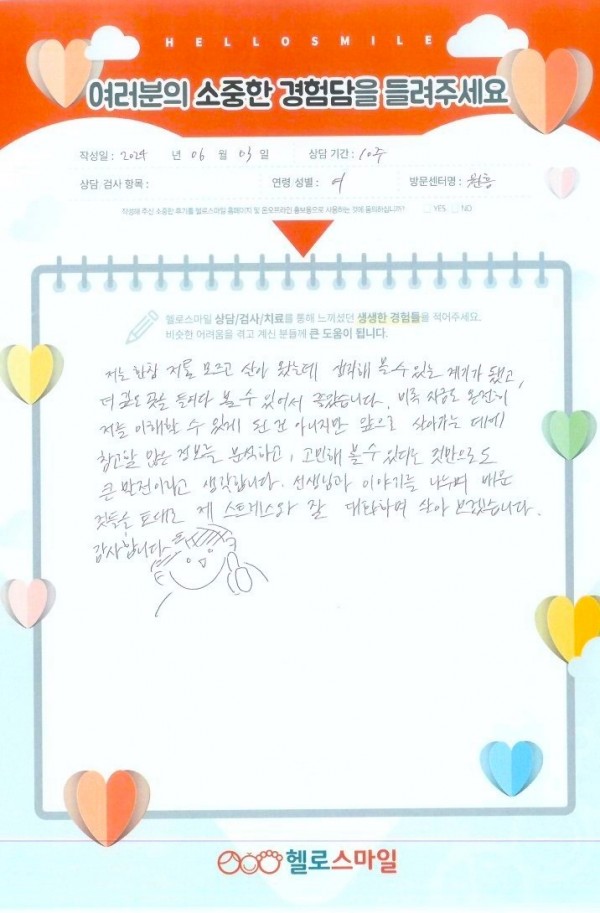 HELLOSMILE
여러분의 소중한 경험담을 들려주세요
작성일 : 2024 년 06 월 03 일 상담 기간 : 10주
상담 검사 항목 : 연령 성별 : 여 방문센터명 :
작성해 주신 소중한 후기를 헬로스마일 홈페이지 및 온오프라인 홍보용으로 사용하는 것에 동의하십니까? YES NO
헬로스마일 상담/검사/치료를 통해 느끼셨던 생생한 경험들을 적어주세요.
비슷한 어려움을 겪고 계신 분들께 큰 도움이 됩니다.
저는 한참 저를 모르고 살아 왔는데 생각해 볼 수 있는 계기가 됐고,
더 깊은 곳을 들여다 볼 수 있어서 좋았습니다. 비록 지금도 온전히
저를 이해할 수 있게 된 건 아니지만 앞으로 살아가는 데에
참고할 많은 정보를 분석하고, 고민해 볼 수 있다는 것만으로도
큰 발전이라고 생각합니다. 선생님과 이야기를 나누며 배운
것들을 토대로 제 스트레스와 잘 대화하며 살아 보겠습니다.
감사합니다
헬로스마일